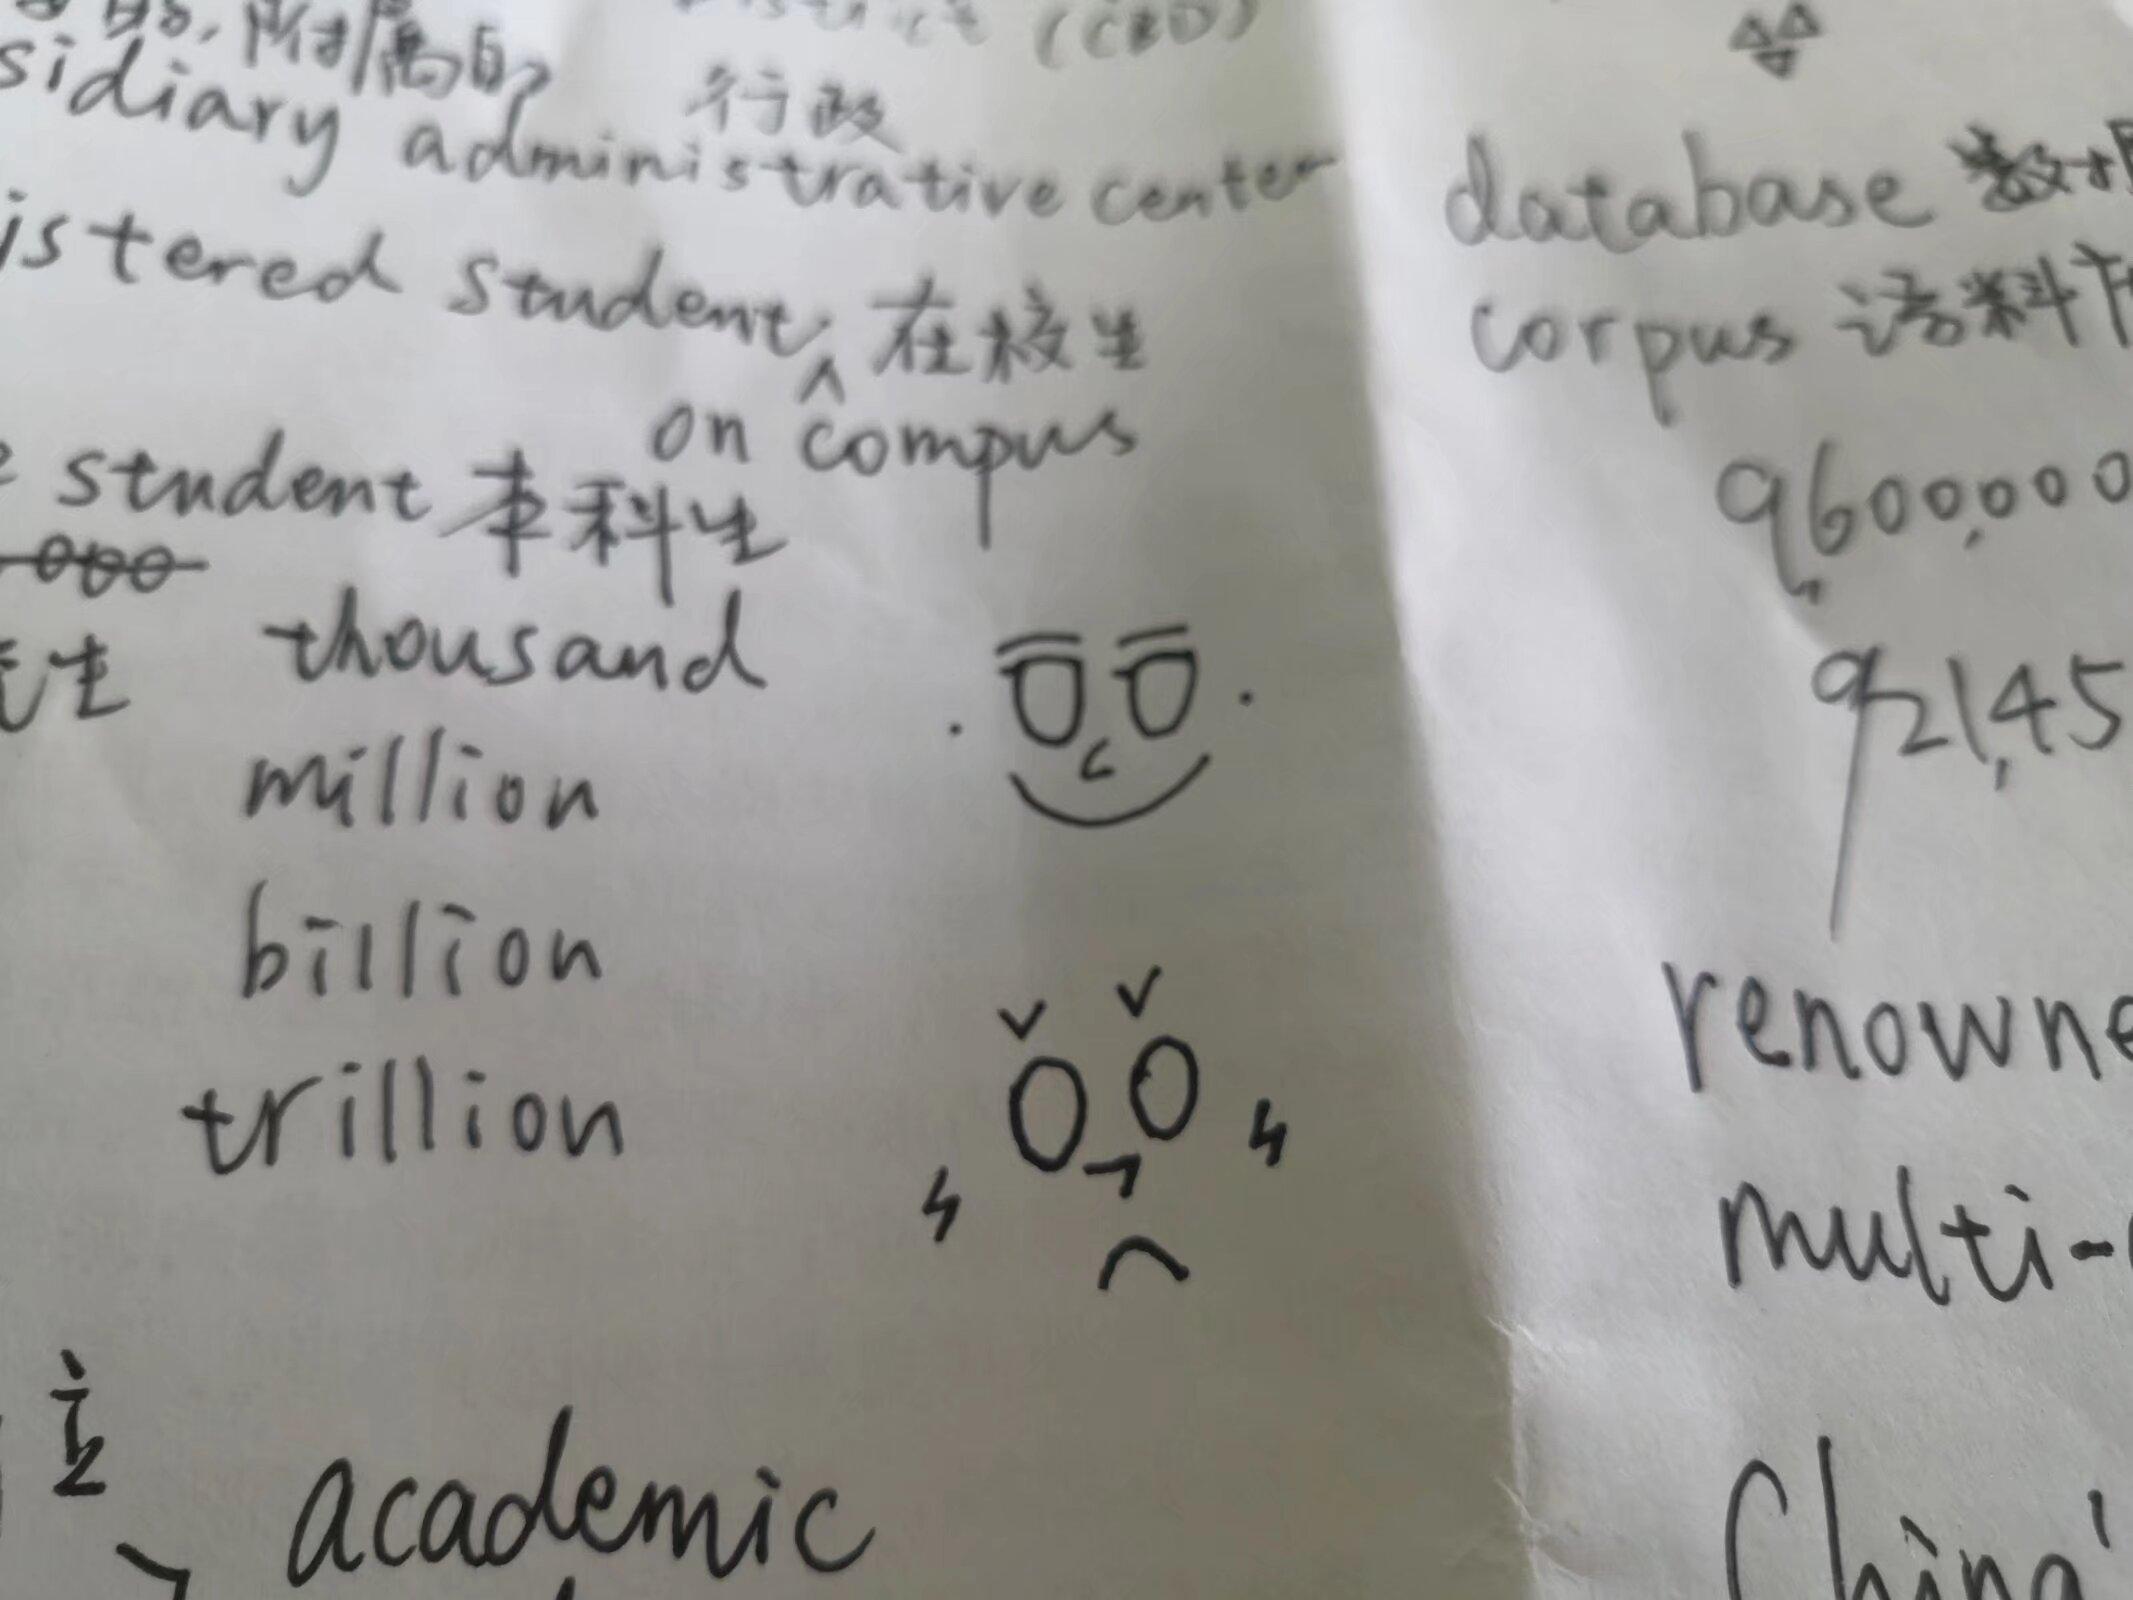 附属的 (CBD)
行政
sidiary administrative center
istered student 在校生
on compus
student 本科生
000
生 thousand
million
billion
trillion
academic
database 数
corpus 语料
9600,000
921,45
renowne
multi-
China'